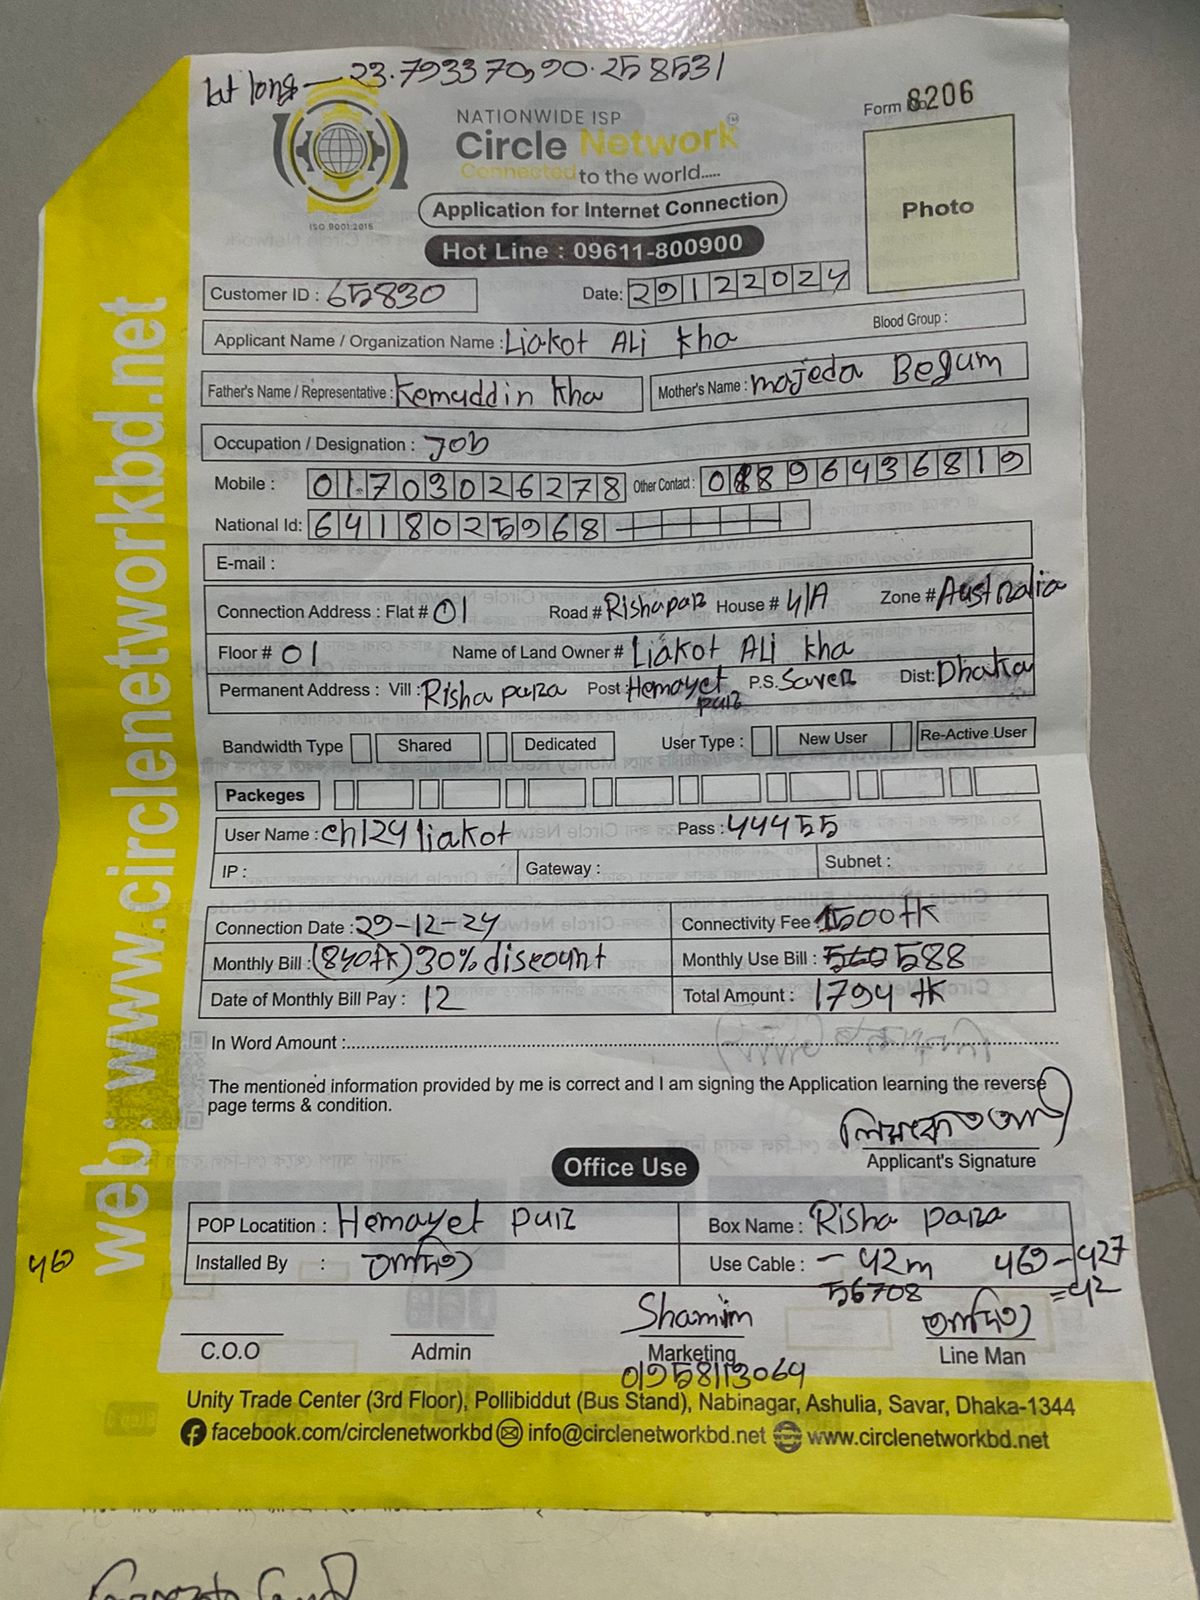 lat long — 23.793370, 90.258531
Form No. 8206
NATIONWIDE ISP
Circle Network™
Connected to the world.....
Application for Internet Connection
Hot Line : 09611-800900
ISO 9001:2015
Photo
Customer ID : 65830 Date: 29122024
Applicant Name / Organization Name : Liakot ALi kha Blood Group :
Father's Name / Representative : Kemuddin kha Mother's Name : majeda Begum
Occupation / Designation : Job
Mobile : 01703026278 Other Contact : 01896436819
National Id: 6418025968
E-mail :
Connection Address : Flat # 01 Road # Rishapar House # 4/A Zone # Australia
Floor # 01 Name of Land Owner # Liakot ALi kha
Permanent Address : Vill : Risha para Post : Hemayet pur P.S. Saver Dist: Dhaka
Bandwidth Type Shared Dedicated User Type : New User Re-Active User
Packeges
User Name : ch124liakot Pass : 44455
IP : Gateway : Subnet :
Connection Date : 29-12-24 Connectivity Fee : 1500tk
Monthly Bill : (840tk) 30% discount Monthly Use Bill : 560 588
Date of Monthly Bill Pay : 12 Total Amount : 1794 tk
In Word Amount :
The mentioned information provided by me is correct and I am signing the Application learning the reverse
page terms & condition.
লিয়াকোত আলী
Applicant's Signature
Office Use
POP Locatition : Hemayet pur Box Name : Risha para
Installed By : Use Cable : – 42m 469-427
=42
56708
469
Shamim
C.O.O Admin Marketing Line Man
01958113064
Unity Trade Center (3rd Floor), Pollibiddut (Bus Stand), Nabinagar, Ashulia, Savar, Dhaka-1344
facebook.com/circlenetworkbd info@circlenetworkbd.net www.circlenetworkbd.net
web: www.circlenetworkbd.net